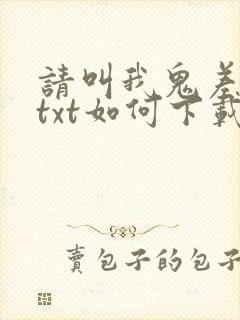 請叫我鬼差
txt如何下載
賣包子的包子